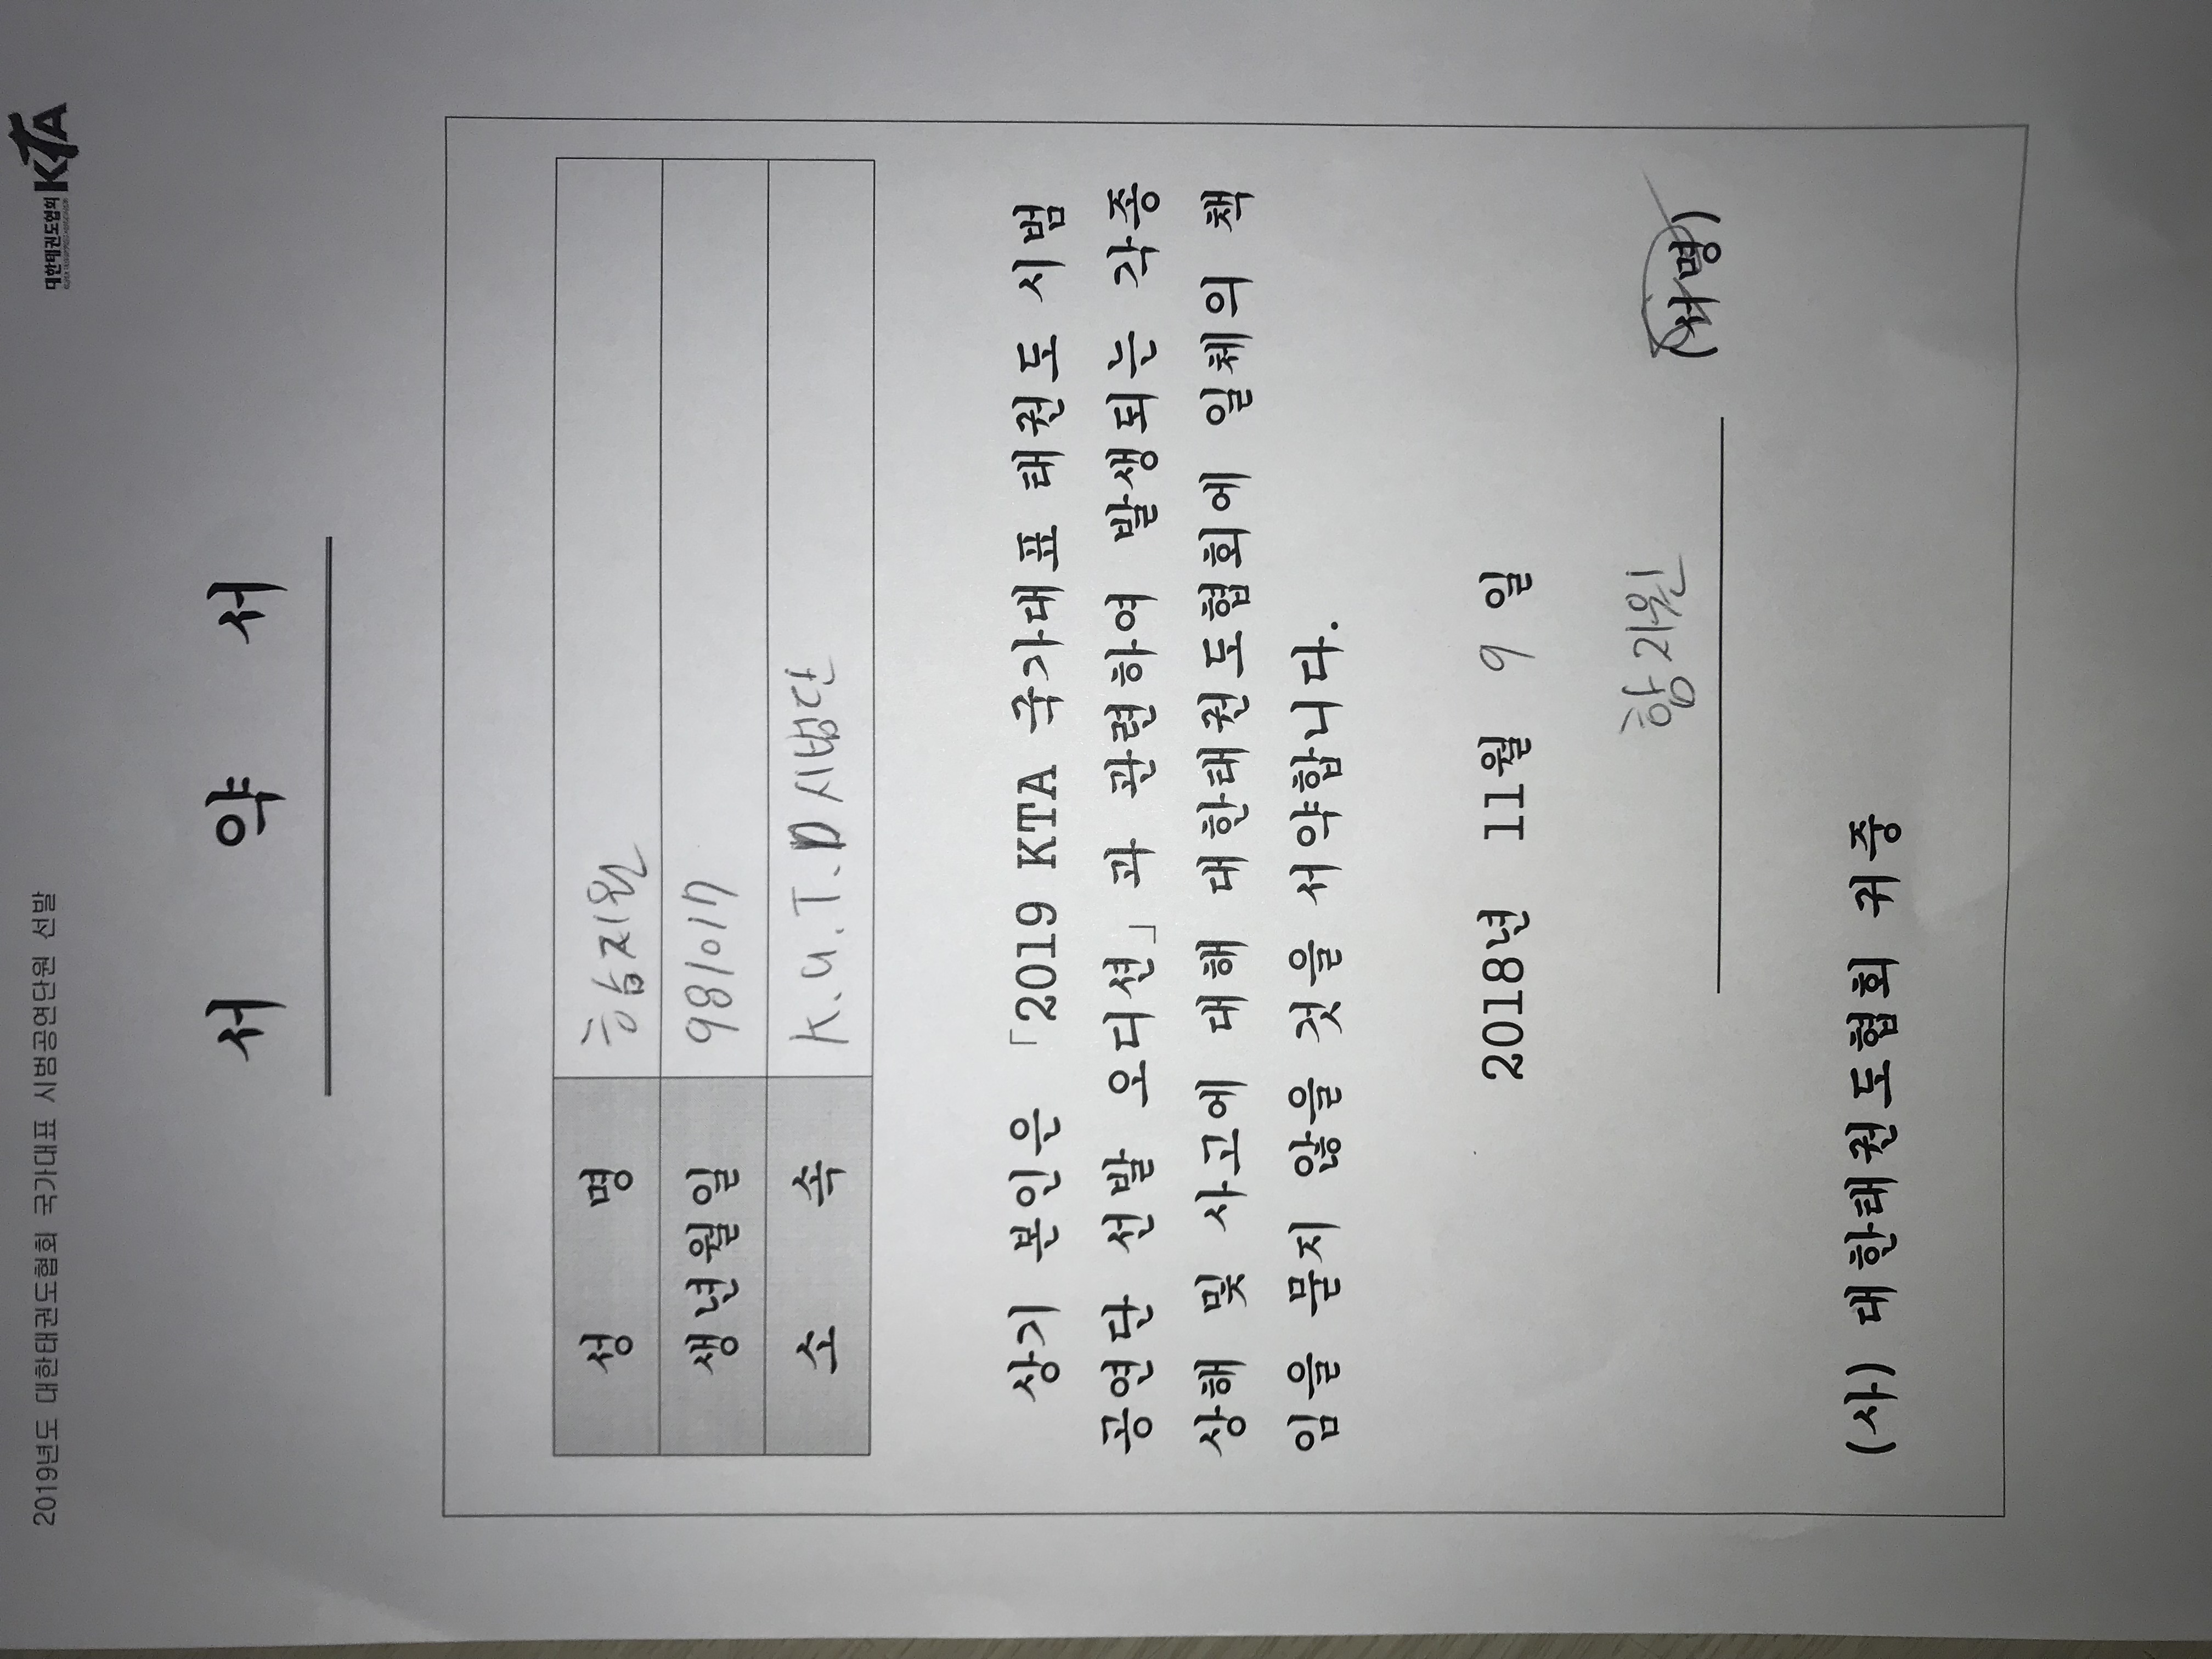 2019년도 대한태권도협회 국가대표 시범공연단원 선발
대한태권도협회 KTA
서 약 서
성 명 함지원
생년월일 981017
소 속 K.U.T.D 시범단
상기 본인은 「2019 KTA 국가대표 태권도 시범
공연단 선발 오디션」과 관련하여 발생되는 각종
상해 및 사고에 대해 대한태권도협회에 일체의 책
임을 묻지 않을 것을 서약합니다.
2018년 11월 9 일
함지원 (서명)
(사) 대한태권도협회 귀중